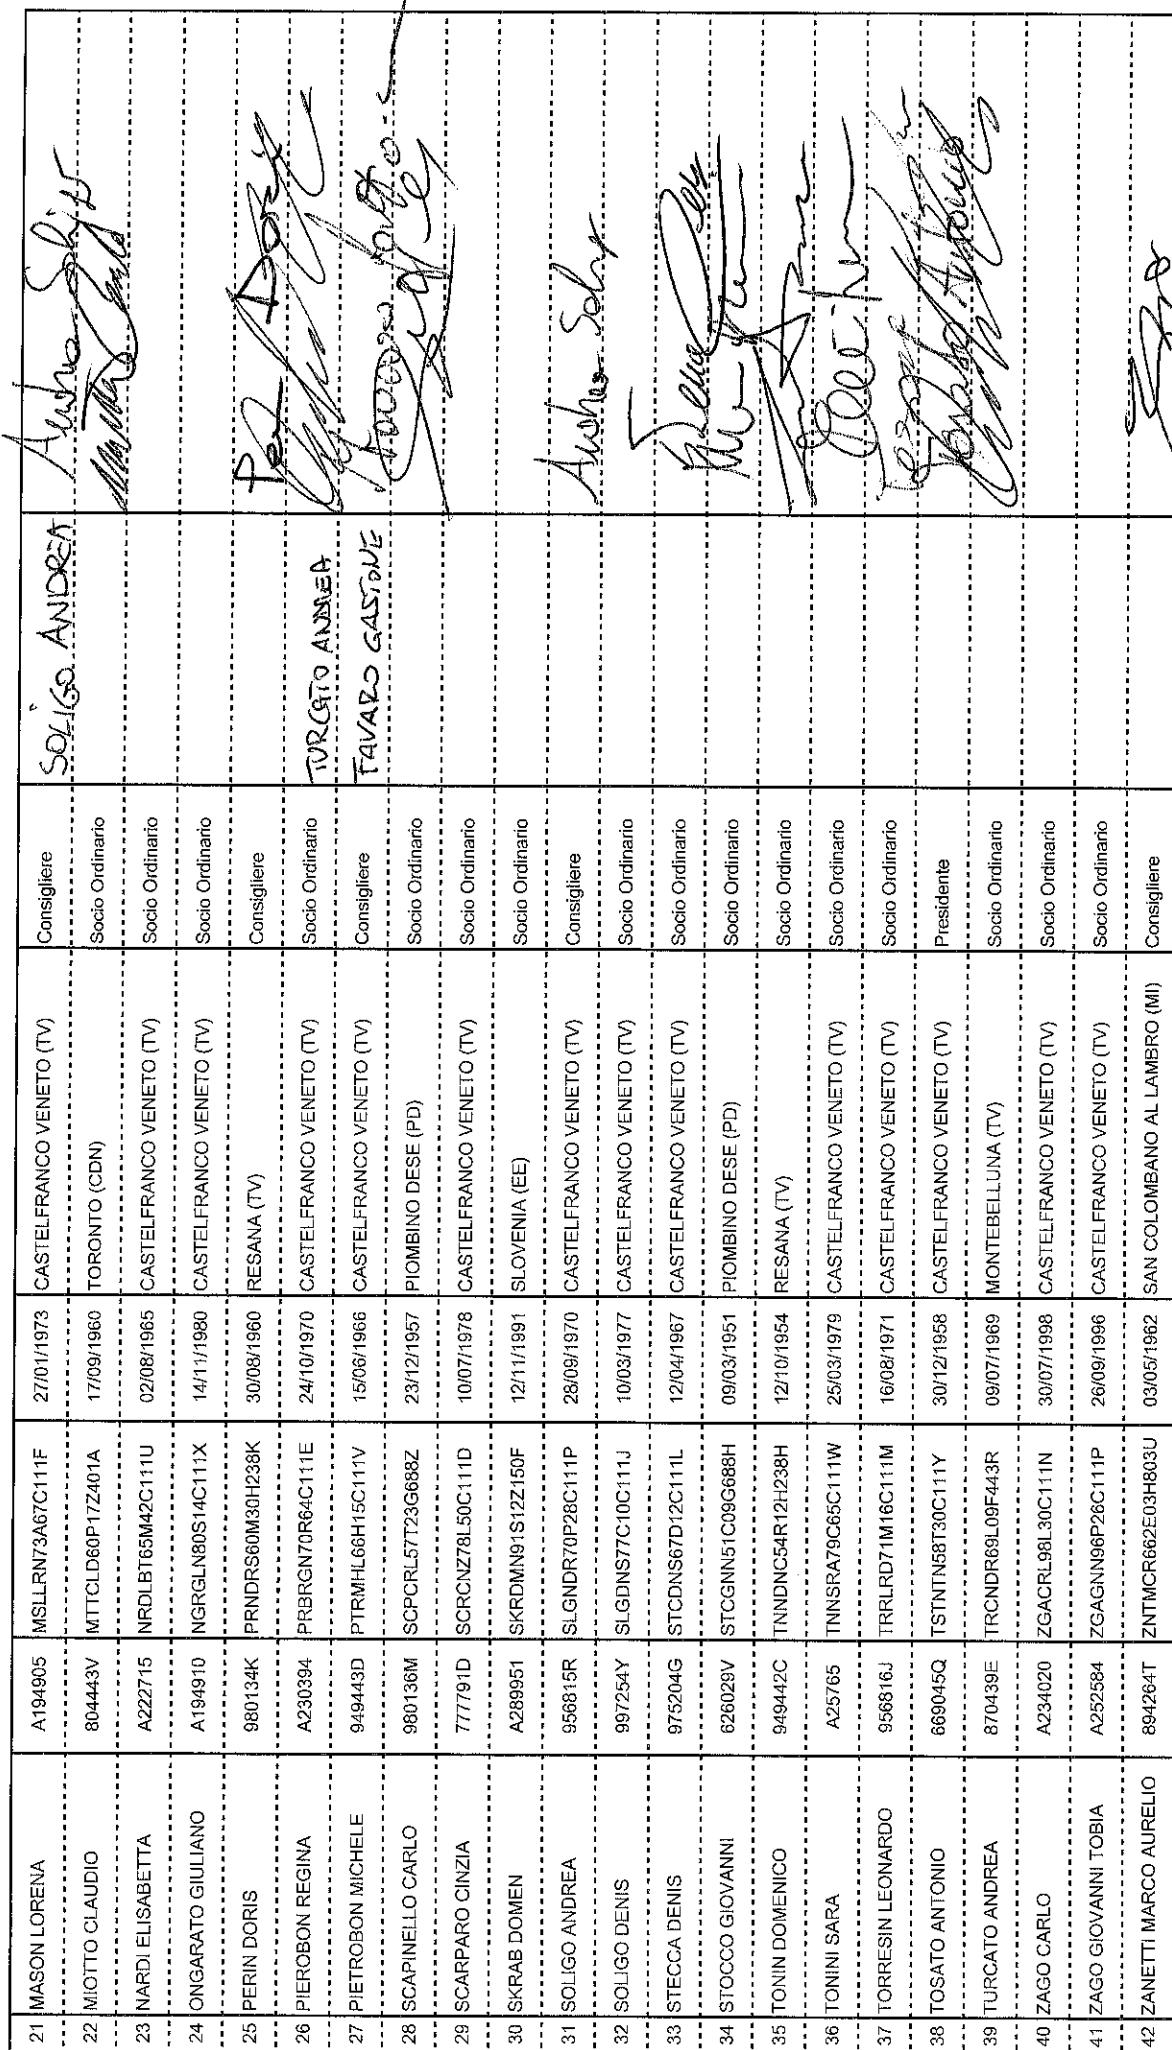 21 MASON LORENA A194905 MSLLRN73A67C111F 27/01/1973 CASTELFRANCO VENETO (TV) Consigliere SOLIGO ANDREA
22 MIOTTO CLAUDIO 804443V MTTCLD60P17Z401A 17/09/1960 TORONTO (CDN) Socio Ordinario
23 NARDI ELISABETTA A222715 NRDLBT65M42C111U 02/08/1965 CASTELFRANCO VENETO (TV) Socio Ordinario
24 ONGARATO GIULIANO A194910 NGRGLN80S14C111X 14/11/1980 CASTELFRANCO VENETO (TV) Socio Ordinario
25 PERIN DORIS 980134K PRNDRS60M30H238K 30/08/1960 RESANA (TV) Consigliere
26 PIEROBON REGINA A230394 PRBRGN70R64C111E 24/10/1970 CASTELFRANCO VENETO (TV) Socio Ordinario TURCATO ANDREA
27 PIETROBON MICHELE 949443D PTRMHL66H15C111V 15/06/1966 CASTELFRANCO VENETO (TV) Consigliere FAVARO GASTONE
28 SCAPINELLO CARLO 980136M SCPCRL57T23G688Z 23/12/1957 PIOMBINO DESE (PD) Socio Ordinario
29 SCARPARO CINZIA 777791D SCRCNZ78L50C111D 10/07/1978 CASTELFRANCO VENETO (TV) Socio Ordinario
30 SKRAB DOMEN A289951 SKRDMN91S12Z150F 12/11/1991 SLOVENIA (EE) Socio Ordinario
31 SOLIGO ANDREA 956815R SLGNDR70P28C111P 28/09/1970 CASTELFRANCO VENETO (TV) Consigliere
32 SOLIGO DENIS 997254Y SLGDNS77C10C111J 10/03/1977 CASTELFRANCO VENETO (TV) Socio Ordinario
33 STECCA DENIS 975204G STCDNS67D12C111L 12/04/1967 CASTELFRANCO VENETO (TV) Socio Ordinario
34 STOCCO GIOVANNI 626029V STCGNN51C09G688H 09/03/1951 PIOMBINO DESE (PD) Socio Ordinario
35 TONIN DOMENICO 949442C TNNDNC54R12H238H 12/10/1954 RESANA (TV) Socio Ordinario
36 TONINI SARA A25765 TNNSRA79C65C111W 25/03/1979 CASTELFRANCO VENETO (TV) Socio Ordinario
37 TORRESIN LEONARDO 956816J TRRLRD71M16C111M 16/08/1971 CASTELFRANCO VENETO (TV) Socio Ordinario
38 TOSATO ANTONIO 669045Q TSTNTN58T30C111Y 30/12/1958 CASTELFRANCO VENETO (TV) Presidente Tosato Antonio
39 TURCATO ANDREA 870439E TRCNDR69L09F443R 09/07/1969 MONTEBELLUNA (TV) Socio Ordinario
40 ZAGO CARLO A234020 ZGACRL98L30C111N 30/07/1998 CASTELFRANCO VENETO (TV) Socio Ordinario
41 ZAGO GIOVANNI TOBIA A252584 ZGAGNN96P26C111P 26/09/1996 CASTELFRANCO VENETO (TV) Socio Ordinario
42 ZANETTI MARCO AURELIO 894264T ZNTMCR662E03H803U 03/05/1962 SAN COLOMBANO AL LAMBRO (MI) Consigliere